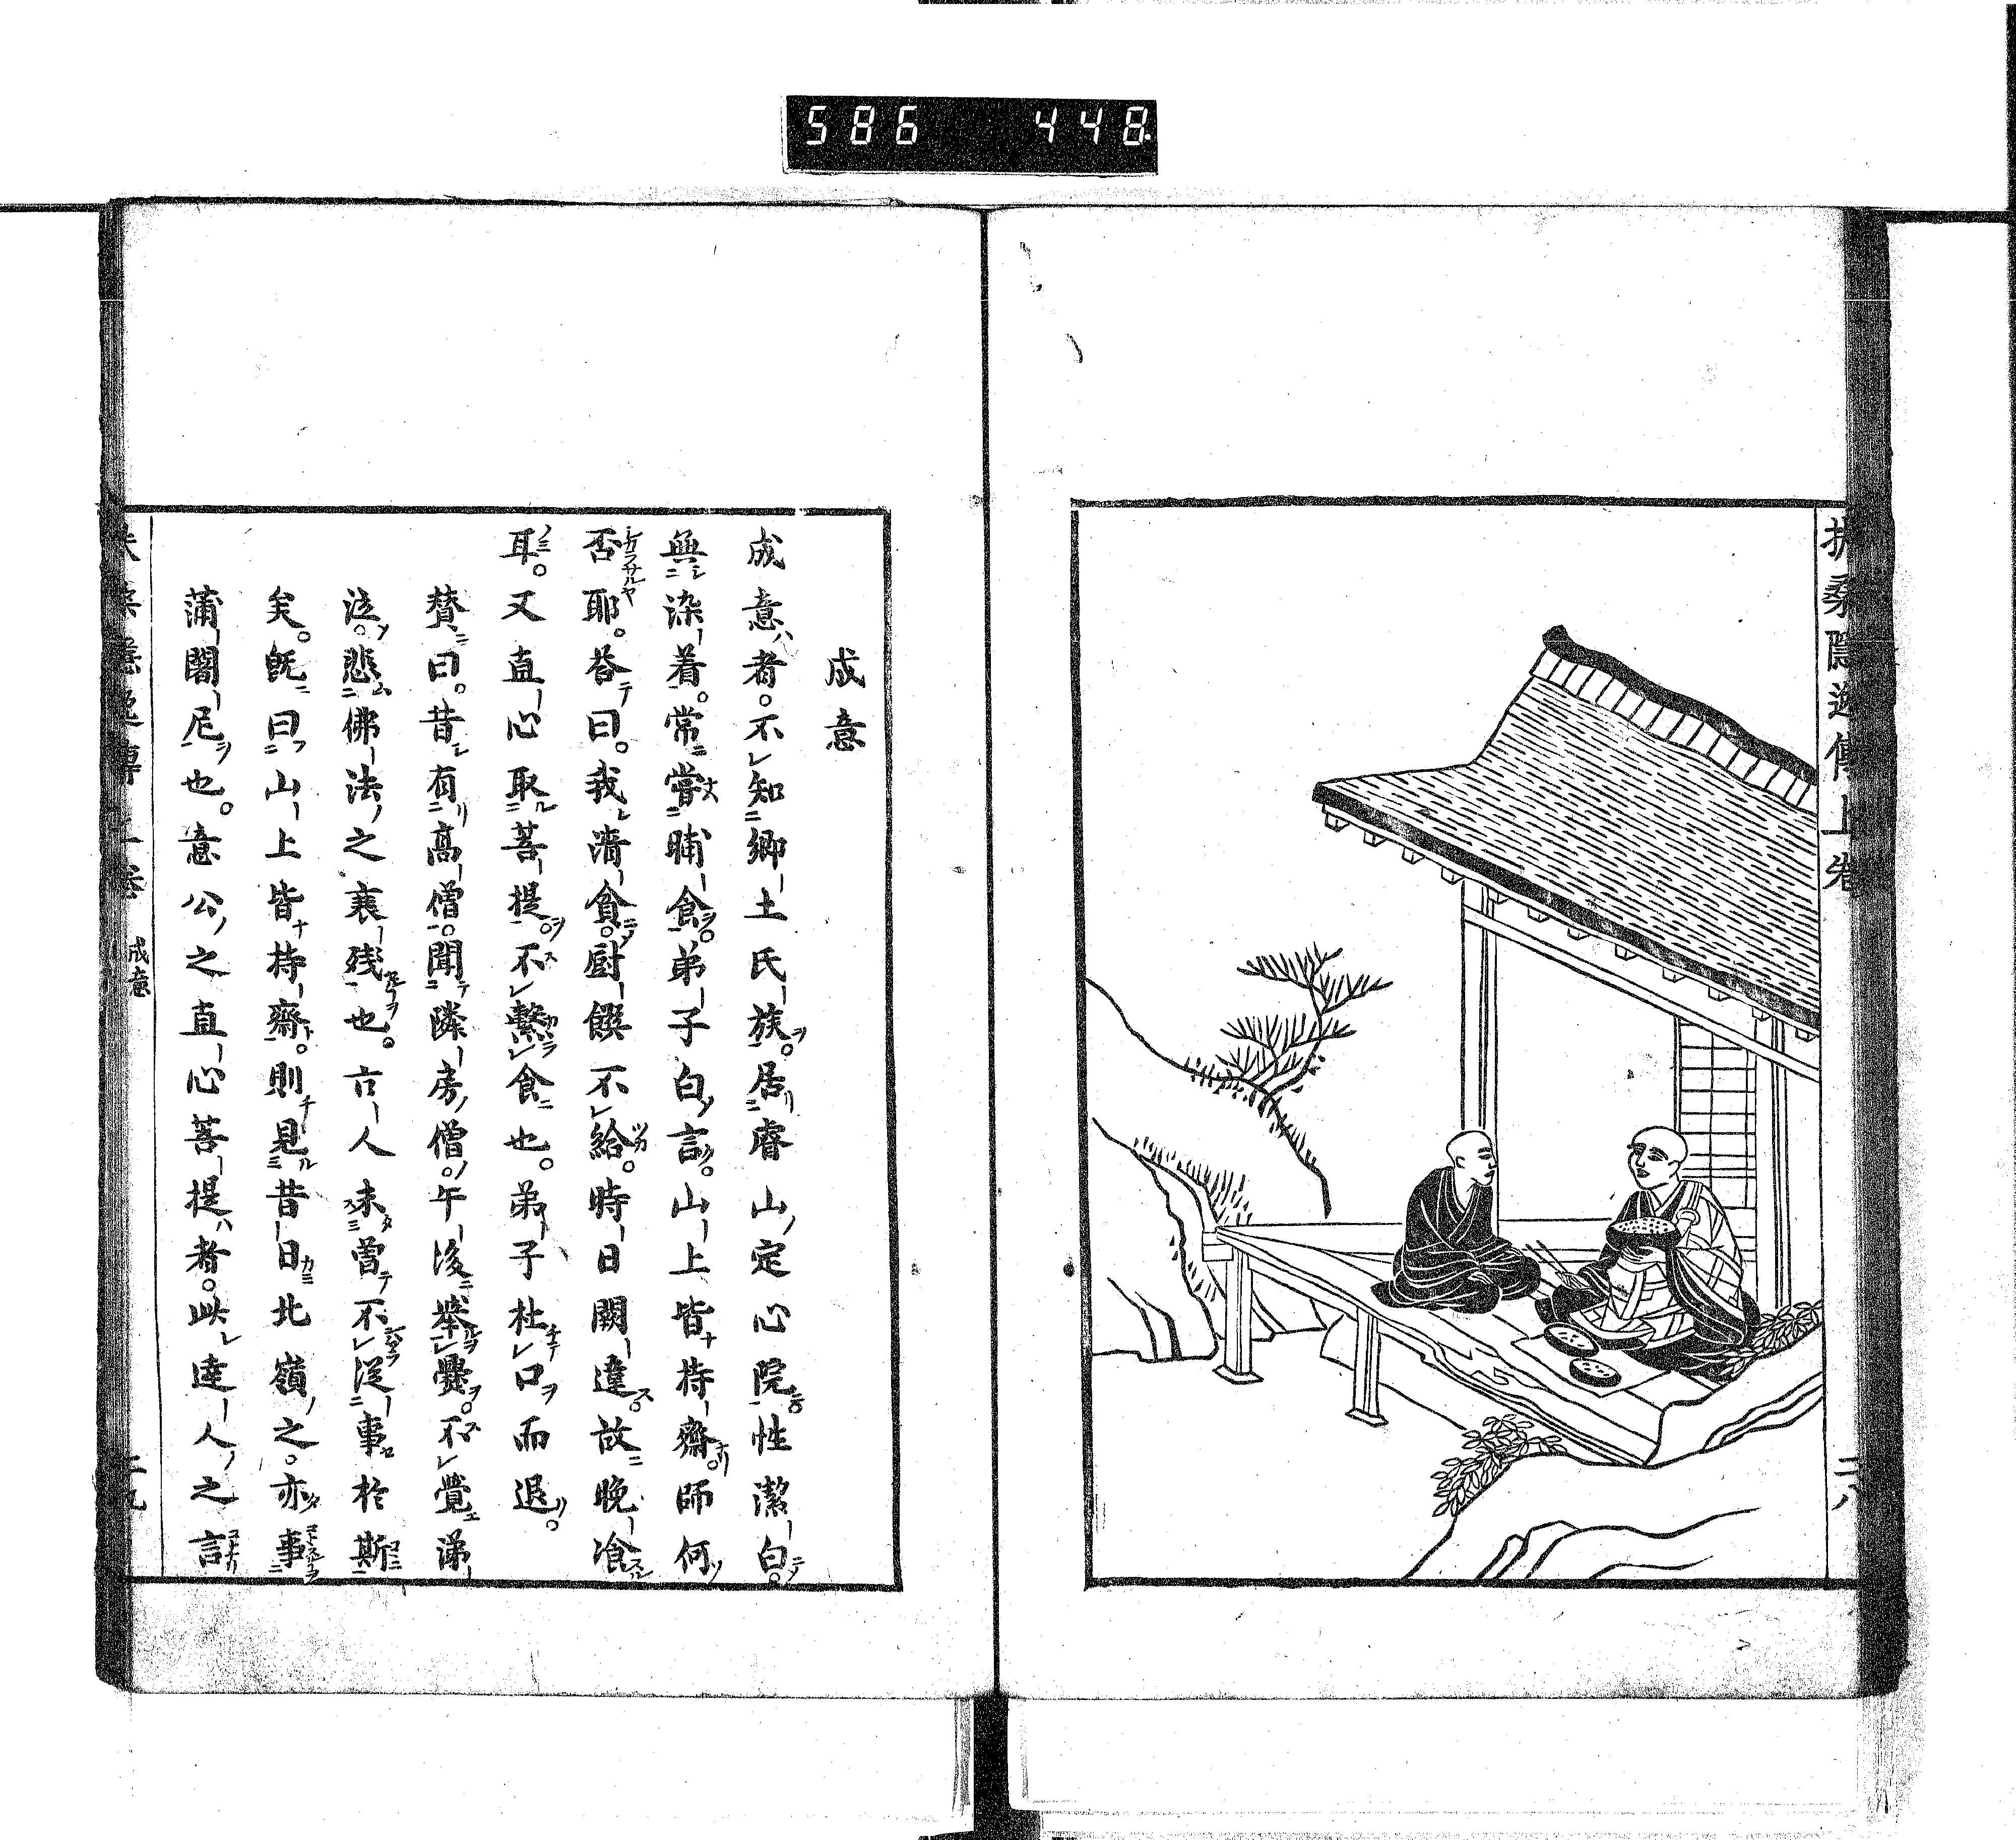 586 448
扶桑隱逸傳上卷
二八
成意
成意者。不知鄉土氏族。居睿山定心院性潔白。
無染着。常嘗晡食。弟子白言。山上皆持齋。師何
否耶。荅曰。我淸貧。厨饌不給。時日闕違故晚飡
耳。又直心取菩提。不繫食也。弟子杜口而退。
贊曰。昔有髙僧。聞隣房僧。午後舉爨。不覺涕
泣。悲佛法之衰殘也。古人未曾不從事於斯
矣。旣曰山上皆持齋。則見昔日北嶺之。亦事
蒲闍尼也。意公之直心菩提者。此達人之言
扶桑隱逸傳上卷
成意
二九